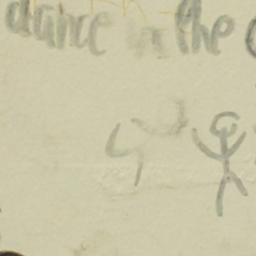 dance in the